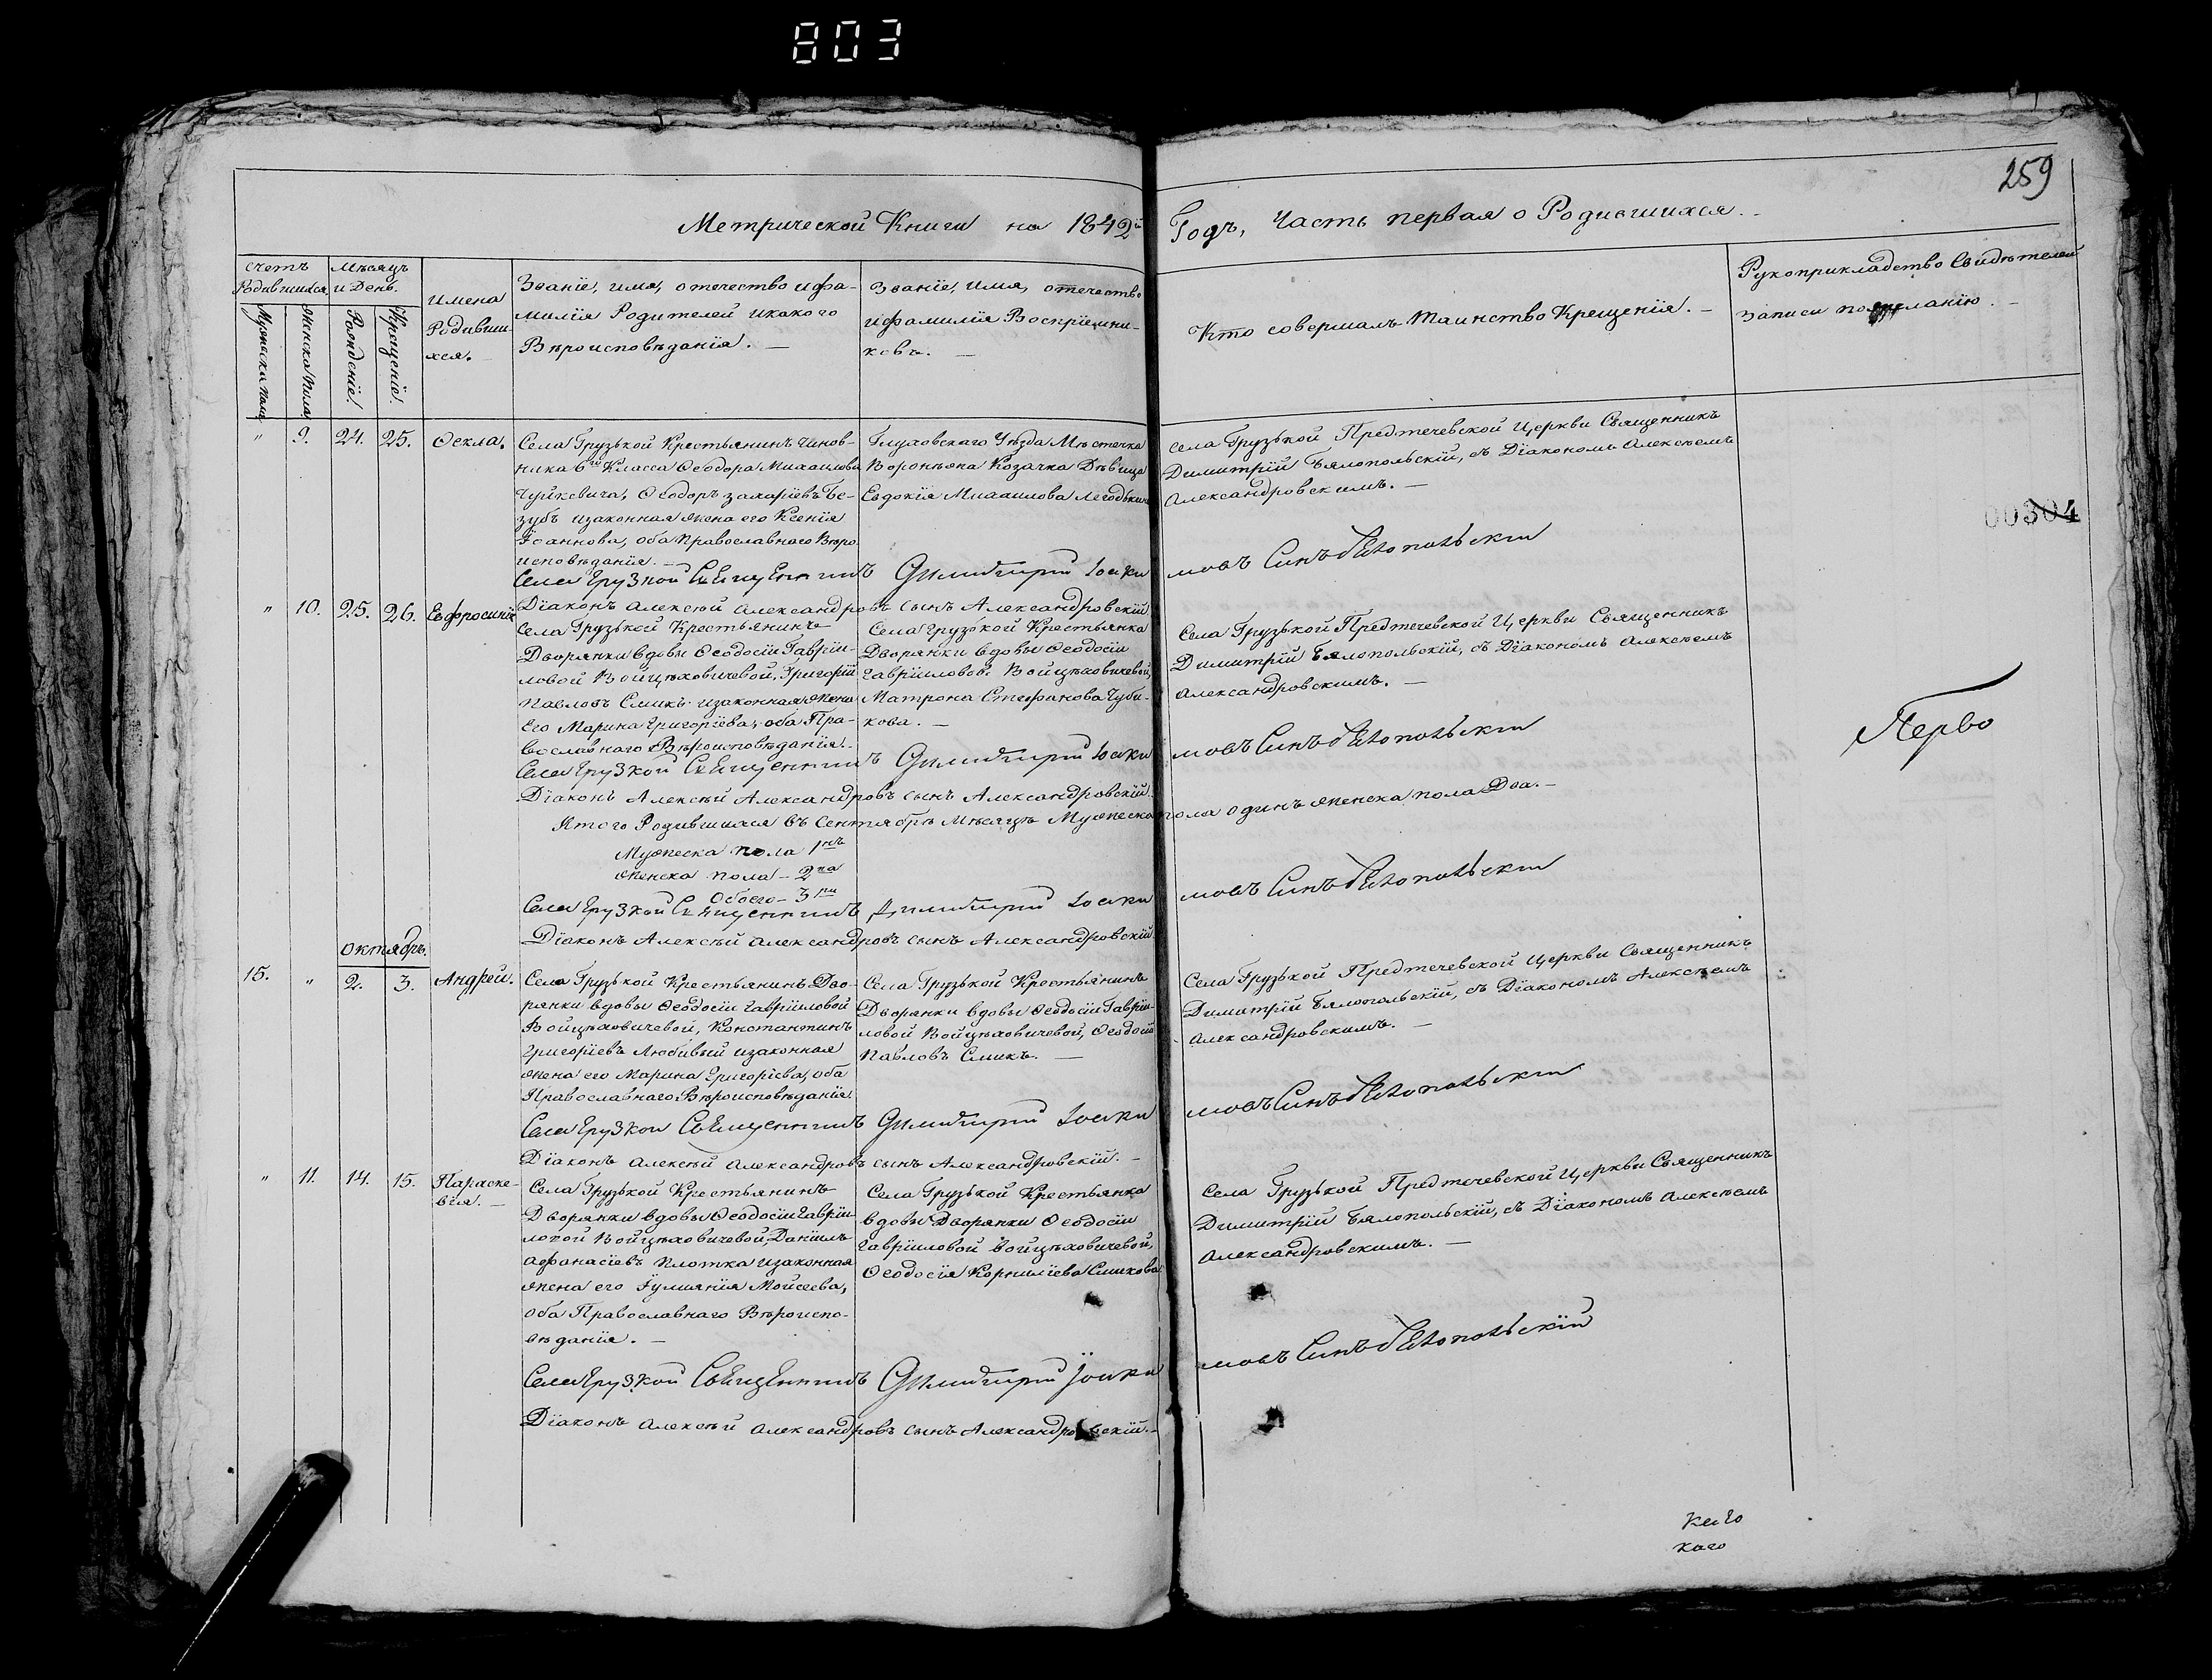 803
259
Метрической Книги на 1842й Годъ, Часть первая о Родившихся.
Счетъ Родившихся
Мужеска пола
Женска пола
Мѣсяцъ и День.
Рожденіе
Крещеніе
Имена
Родивши-
хся.
Званіе, имя, отечество и фа-
милія Родителей и какого
Вѣроисповѣданія. —
Званіе, имя, отечество
и фамилія Воспріемни-
ковъ. —
Кто совершалъ Таинство Крещенія. —
Рукоприкладство Свидѣтелей
записи по желанію. —
00304
" 9. 24. 25. Ѳекла.
Села Грузькой Крестьянинъ Чинов-
ника 6го Класса Ѳеодора Михаилова
Чуйкевича, Ѳеодоръ Захаріевъ Бе-
зубъ и законная жена его Ксенія
Іоаннова, оба Православнаго Вѣро-
исповѣданія. —
Глуховскаго Уѣзда Мѣстечка
Воронѣжа Козачка Дѣвица
Евдокія Михаилова
Села Грузькой Предтечевской Церкви Священникъ
Димитрій Бялопольскій, съ Діакономъ Алексѣемъ
Александровскимъ. —
Села Грузкой Священникъ Димитрій Іоаки мовъ Синъ Бялопольскій
Діаконъ Алексѣй Александровъ сынъ Александровскій
" 10. 25. 26. Евфросинія
Села Грузькой Крестьянинъ
Дворянки вдовы Ѳеодосіи Гавріи-
ловой Войцѣховичевой, Григорій
Павловъ Смикъ и законная жена
его Марина Григоріева, оба Пра-
вославнаго Вѣроисповѣданія.
Села Грузькой Крестьянка
Дворянки вдовы Ѳеодосіи
Гавріиловой Войцѣховичевой,
Матрона Стефанова Чуби-
кова. —
Села Грузькой Предтечевской Церкви Священникъ
Димитрій Бялопольскій, съ Діакономъ Алексѣемъ
Александровскимъ. —
Перво
Села Грузкой Священникъ Димитрій Іоаки мовъ Синъ Бялопольскій
Діаконъ Алексѣй Александровъ сынъ Александровскій.
Итого Родившихся въ Сентябрѣ Мѣсяцѣ Мужеска пола одинъ женска пола Два. —
Мужеска пола 1нъ
женска пола — 2ва
Обоего — 3ри
Села Грузкой Священникъ Димитрій Іоаки мовъ Синъ Бялопольскій
Діаконъ Алексѣй Александровъ сынъ Александровскій.
Октябрь.
15. " 2. 3. Андрей.
Села Грузькой Крестьянинъ Дво-
рянки вдовы Ѳеодосіи Гавріиловой
Войцѣховичевой, Константинъ
Григоріевъ Любивый и законная
жена его Марина Григоріева, оба
Православнаго Вѣроисповѣданія
Села Грузькой Крестьянинъ
Дворянки вдовы Ѳеодосіи Гавріи-
ловой Войцѣховичевой, Ѳеодосій
Павловъ Смикъ. —
Села Грузькой Предтечевской Церкви Священникъ
Димитрій Бялопольскій, съ Діакономъ Алексѣемъ
Александровскимъ. —
Села Грузкой Священникъ Димитрій Іоаки мовъ Синъ Бялопольскій
Діаконъ Алексѣй Александровъ сынъ Александровскій. —
" 11. 14. 15. Параске-
вія. —
Села Грузькой Крестьянинъ
Дворянки вдовы Ѳеодосіи Гавріи-
ловой Войцѣховичевой, Даніилъ
Афанасіевъ Плотка и законная
жена его Іулиянія Мойсеева,
оба Православнаго Вѣроиспо-
вѣданія. —
Села Грузькой Крестьянка
вдовы Дворянки Ѳеодосіи
Гавріиловой Войцѣховичевой,
Ѳеодосія КорнилІева Смикова
Села Грузькой Предтечевской Церкви Священникъ
Димитрій Бялопольскій, съ Діакономъ Алексѣемъ
Александровскимъ. —
Села Грузкой Священникъ Димитрій Іоаки мовъ Синъ Бялопольскій
Діаконъ Алексѣй Александровъ сынъ Александровскій. —
каго